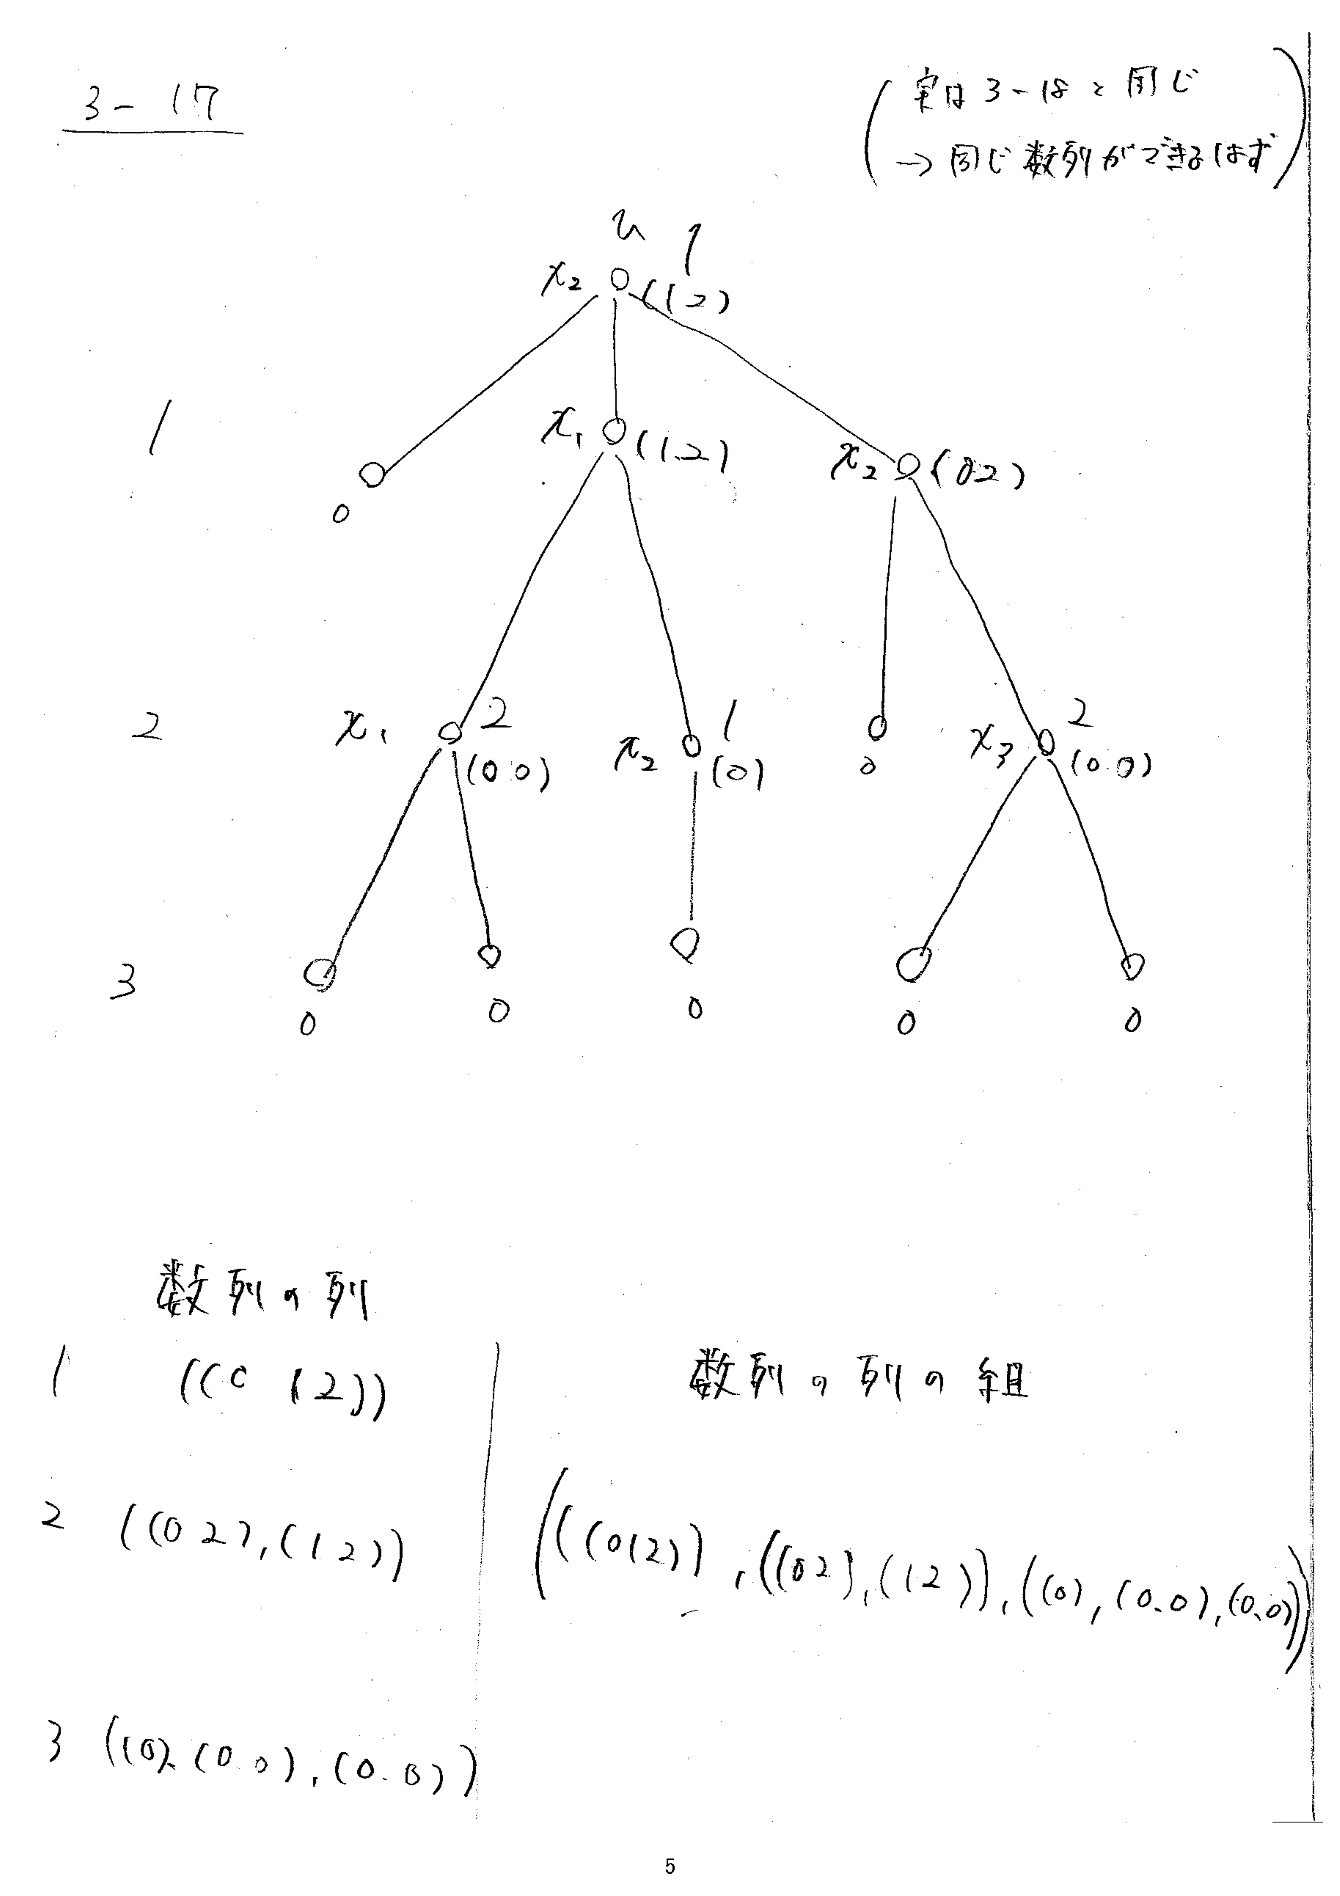 3-17
(実は3-18と同じ
→同じ数列ができるはず)
1
x₂ (12)
1
x₁ (1.2)
x₂ (02)
0
2
x₁ 2
(0.0)
x₂ 1
(0)
0
x₃ 2
(0.0)
3
0 0 0 0 0
数列の列
1 ((0 12))
2 ((02),(12))
3 ((0).(0.0),(0.0))
数列の列の組
(((012)),((02),(12)),((0),(0.0),(0.0)))
5